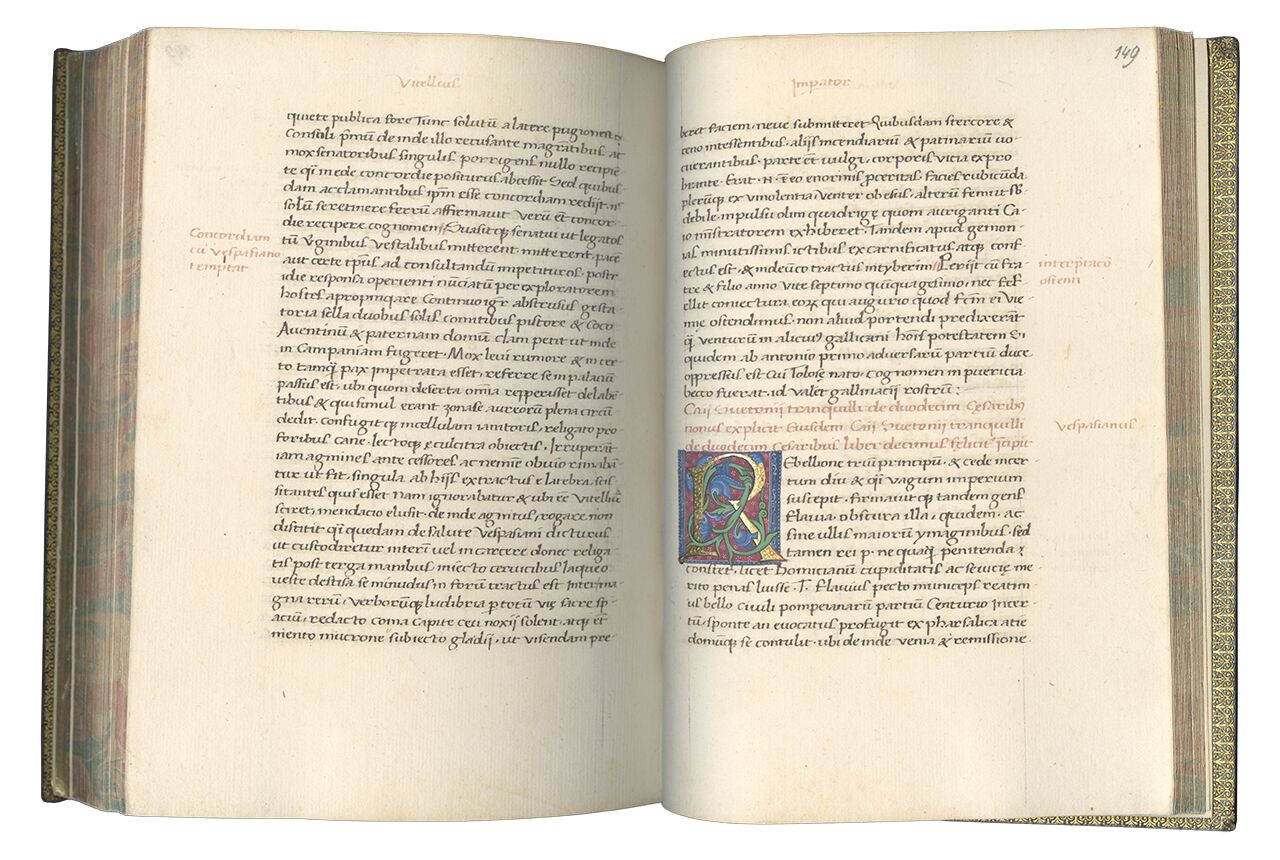 Vitellius
quiete publica fore Tunc solutū a latere pugionem
Consuli pꝛmū de inde illo recusante magratibus ac
mox senatoribus singulis porrigens nullo recipien-
te qͥ in ede concordie positurus abcessit Sed quibus-
dam acclamantibus ipm̄ esse concordiam redijt
solūm se retinere ferrū affirmauit verū et concor-
die recipere cognomen Suasitqꝫ senatui ut legatos
Concordiam
cū Vespasiano
temptat
tū Virginibus vestalibus mitterent mitterent pacē
aut certe tp̄us ad consultandum impetituros postr
idie responsa operienti nūciatū per exploratorem
hostes apropinqare Continuo igr abstrusus gesta-
toria sella duobus solis comitibus pistore & coco
Auentinū & paternam domū clam petit ut inde
in Campaniam fugeret Mox leui rumore & incer-
to tamqͣ pax impetrata esset referre se in palatiū
passus est ubi quom deserta omīa repperisset delabē-
tibus & qui simul erant zonase aureorū plena circū
dedit confugitqꝫ in cellulam ianitoris religato pro
foribus cane lectoqꝫ & culcitra obiectis Irruperāt
iam agmines ante cessores ac nemīe obuio rimabā-
tur ut fit singula ab hijs extractus e latebra scis-
sitantes quis esset nam ignorabatur & ubi eē Vitelliū
sciret mendacio elusit de inde agnitus rogare non
distitit qͥ quedam de salute Vespasiani dicturus
ut custodiretur interī uel in carcere donec religa-
tis post terga manibus iniecto ceruicibus laqueo
veste destisa seminudus in forū tractus est inter ma-
gna rerū verborūqꝫ ludibria p totū vie sacre sp-
acū redacto coma capite ceu noxij solent atqꝫ et
mento mucrone subiecto gladij ut visendam pre-
149
Imꝑator
beret faciem neue submitteret Quibusdam stercore &
ceno intessentibus alijs incendiariū & patinariū uo-
ciuerantibus parte et vulgi corporis vicia expro
brante Erat .n. ī eo enormis proceritas facies rubicūda
plerūqꝫ ex vinolentia venter obesus alterū femur sb
debile inpulsu olim quadrige quom auriganti Ca
io ministratorem exhiberet Tandem apud gemon
ias minutissimis ictibus excarnificatus atqꝫ conf-
ectus est & inde unco tractus in tyberim Perijt cū fra-
interp̄taco
ostenti
tre & filio anno vite septimo quīquagesimo nec fef-
ellit coniectura eorꝫ qui augurio quod fcm̄ ei Vie
nne ostendimus non aliud portendi predixerāt
qͣ venturū in alicuꝰ gallicani hoīs potestatem Si
quidem ab antonio primo aduersarū partiū duce
oppressus est Cui Tolose nato cognomen in puericia
becco fuerat id valet gallinacij rostrū :
Caii Suetonii tranquilli de duodecim Cęsaribꝰ
nonus explicit Eiusdem Caii Suetonii tranquilli
Vespasianus
de duodecim Cesaribus liber decimus felicit īcipit
REbellione triū principū & cede incer
tum diu & qͣ vagum imperium
suscepit firmauit qꝫ tandem gens
Flauia obscura illa quidem ac
sine ullis maiorū ymaginibus sed
tamen rei p. ne quaqꝫ penitenda &
constet licet Domicianū cupiditatis ac seuicie me
rito penas luisse T. Flauius pecto municeps reatin
us bello ciuili pompeianarū partiū Centurio incer
tū sponte an euocatus profugit ex pharsalica acie
domūqꝫ se contulit ubi de inde venia & remissione